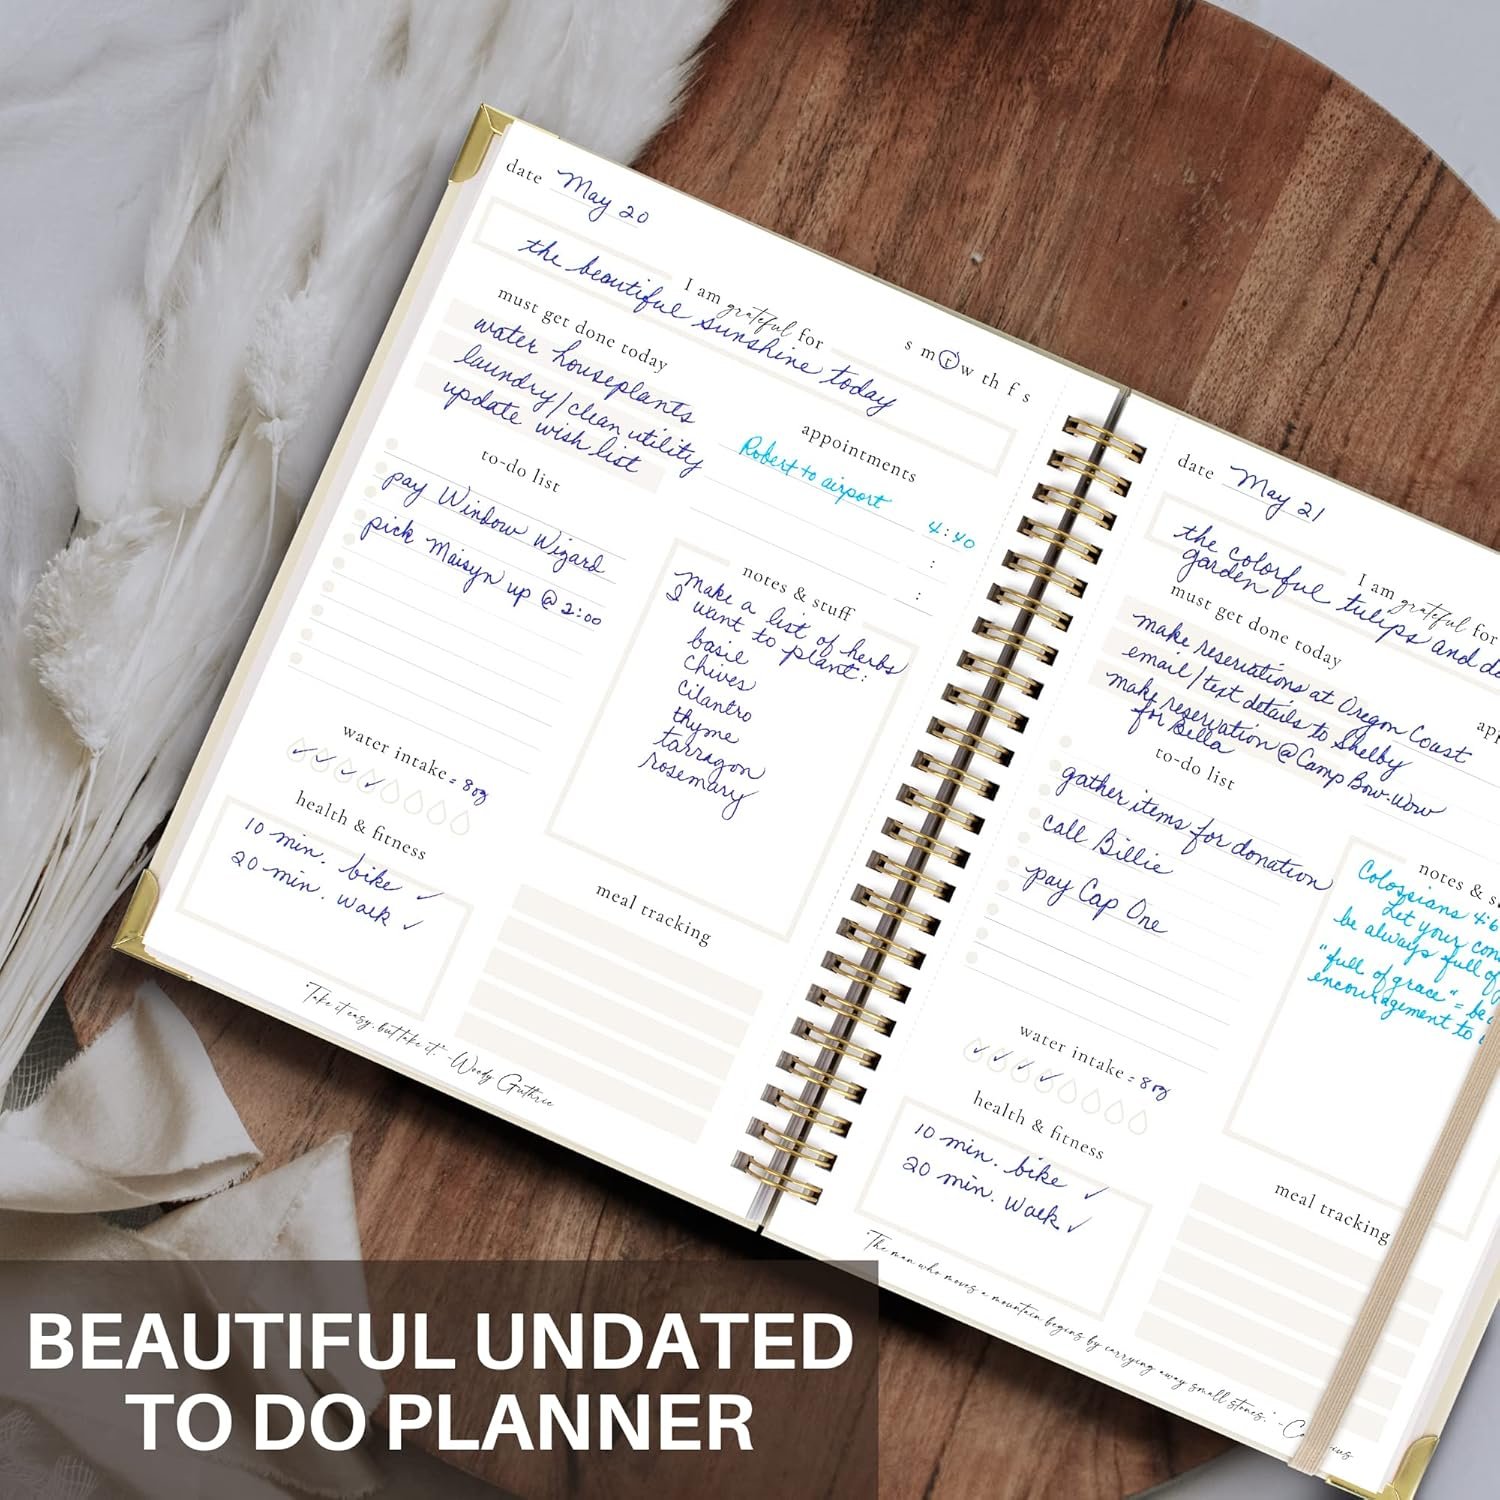 date May 20
s m t w th f s
I am grateful for
the beautiful sunshine today
must get done today
water houseplants
laundry/clean utility
update wish list
appointments
Robert to airport 4:40
:
:
to-do list
pay Window Wizard
pick Maisyn up @ 2:00
notes & stuff
Make a list of herbs
I want to plant:
basil
chives
cilantro
thyme
tarragon
rosemary
water intake = 8oz
health & fitness
10 min. bike ✓
20 min. walk ✓
meal tracking
"Take it easy, but take it." -Woody Guthrie
date May 21
I am grateful for
the colorful tulips and
garden
must get done today
make reservations at Oregon Coast
email/text details to Shelby
make reservation @ Camp Bow-Wow
for Bella
app
to-do list
gather items for donation
call Billie
pay Cap One
notes & s
Colossians 4:6
Let your con
be always full of
"full of grace" = be
encouragement to
water intake = 8oz
health & fitness
10 min. bike ✓
20 min. walk ✓
meal tracking
"The man who moves a mountain begins by carrying away small stones." -Co
BEAUTIFUL UNDATED
TO DO PLANNER